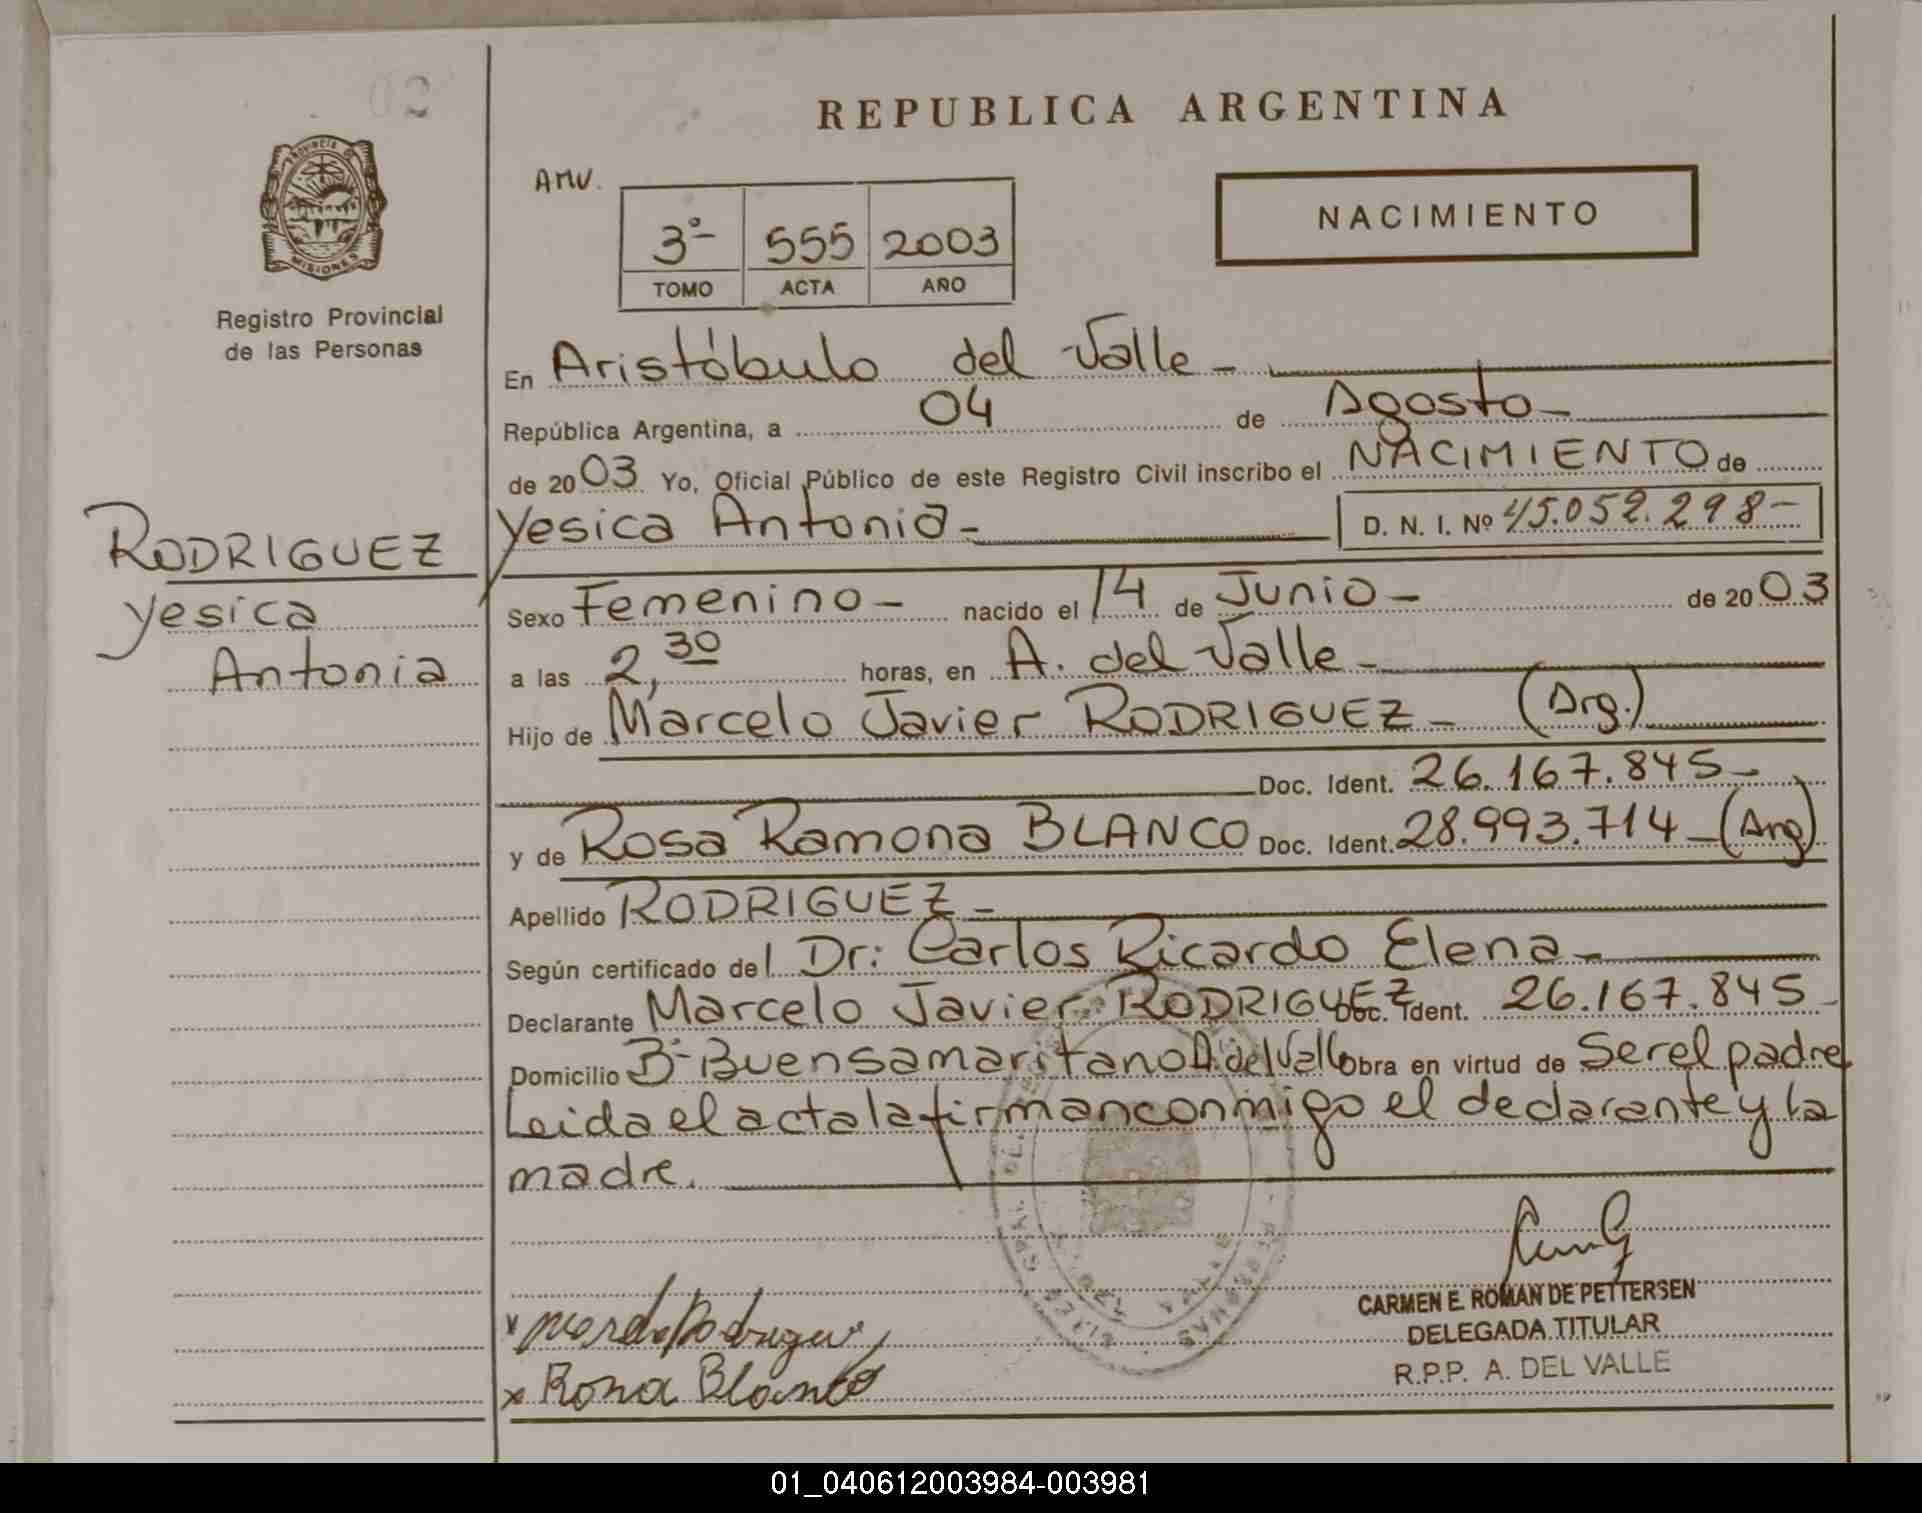 02
PROVINCIA DE
MISIONES
Registro Provincial
de las Personas
RODRIGUEZ
Yesica
Antonia
REPUBLICA ARGENTINA
AMV.
3º 555 2003
TOMO ACTA AÑO
NACIMIENTO
En Aristóbulo del Valle -
República Argentina, a 04 de Agosto -
de 2003 Yo, Oficial Público de este Registro Civil inscribo el NACIMIENTO de
Yesica Antonia - D. N. I. Nº 45.052.298 -
Sexo Femenino - nacido el 14 de Junio - de 2003
a las 2,30 horas, en A. del Valle -
Hijo de Marcelo Javier RODRIGUEZ - (Arg.)
Doc. Ident. 26.167.845 -
y de Rosa Ramona BLANCO Doc. Ident. 28.993.714 - (Arg)
Apellido RODRIGUEZ -
Según certificado del Dr: Carlos Ricardo Elena -
Declarante Marcelo Javier RODRIGUEZ Doc. Ident. 26.167.845 -
Domicilio Bº Buen samaritano A. del Valle Obra en virtud de Ser el padre
Leida el acta la firman conmigo el declarante y la
madre.
CARMEN E. ROMAN DE PETTERSEN
DELEGADA TITULAR
R.P.P. A. DEL VALLE
x Rosa Blanco
01_040612003984-003981